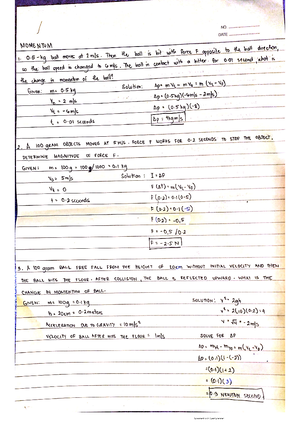 NO.
DATE
MOMENTUM
1. 0.5-kg ball moves at 2 m/s. Then the ball is hit with force F opposite to the ball direction,
so the ball speed is changed to 6 m/s. The ball in contact with a hitter for 0.01 second, what is
the change in momentum of the ball?
Given: m = 0.5 kg Solution: Δp = mv₂ - mv₀ = m (v₂ - v₀)
v₀ = 2 m/s Δp = (0.5 kg)(-6 m/s - 2 m/s)
v₂ = -6 m/s Δp = (0.5 kg)(-8)
t = 0.01 seconds Δp = 4 kg m/s
2. A 100 gram objects moves at 5 m/s. Force F works for 0.2 seconds to stop the object,
determine magnitude of force F.
Given: m = 100 g = 100 g/1000 = 0.1 kg
v₀ = 5 m/s Solution: I = ΔP
v₂ = 0 F (Δt) = m(v₂ - v₀)
t = 0.2 seconds F (0.2) = 0.1 (0-5)
F (0.2) = 0.1 (-5)
F (0.2) = -0.5
F = -0.5 / 0.2
F = -2.5 N
3. A 100 gram ball free fall from the height of 20cm without initial velocity and then
the ball hits the floor. After collision, the ball is reflected upward. What is the
change in momentum of ball.
Given: m = 100g = 0.1 kg Solution: v² = 2gh
h = 20cm = 0.2 meters v² = 2(10)(0.2) = 4
Acceleration due to gravity = 10 m/s² v = √4 = -2 m/s
Velocity of ball after hits the floor = 1 m/s Solve for ΔP
ΔP = (0.1)(1-(-2))
= (0.1)(1+2)
= (0.1)(3)
= 0.3 Newton second